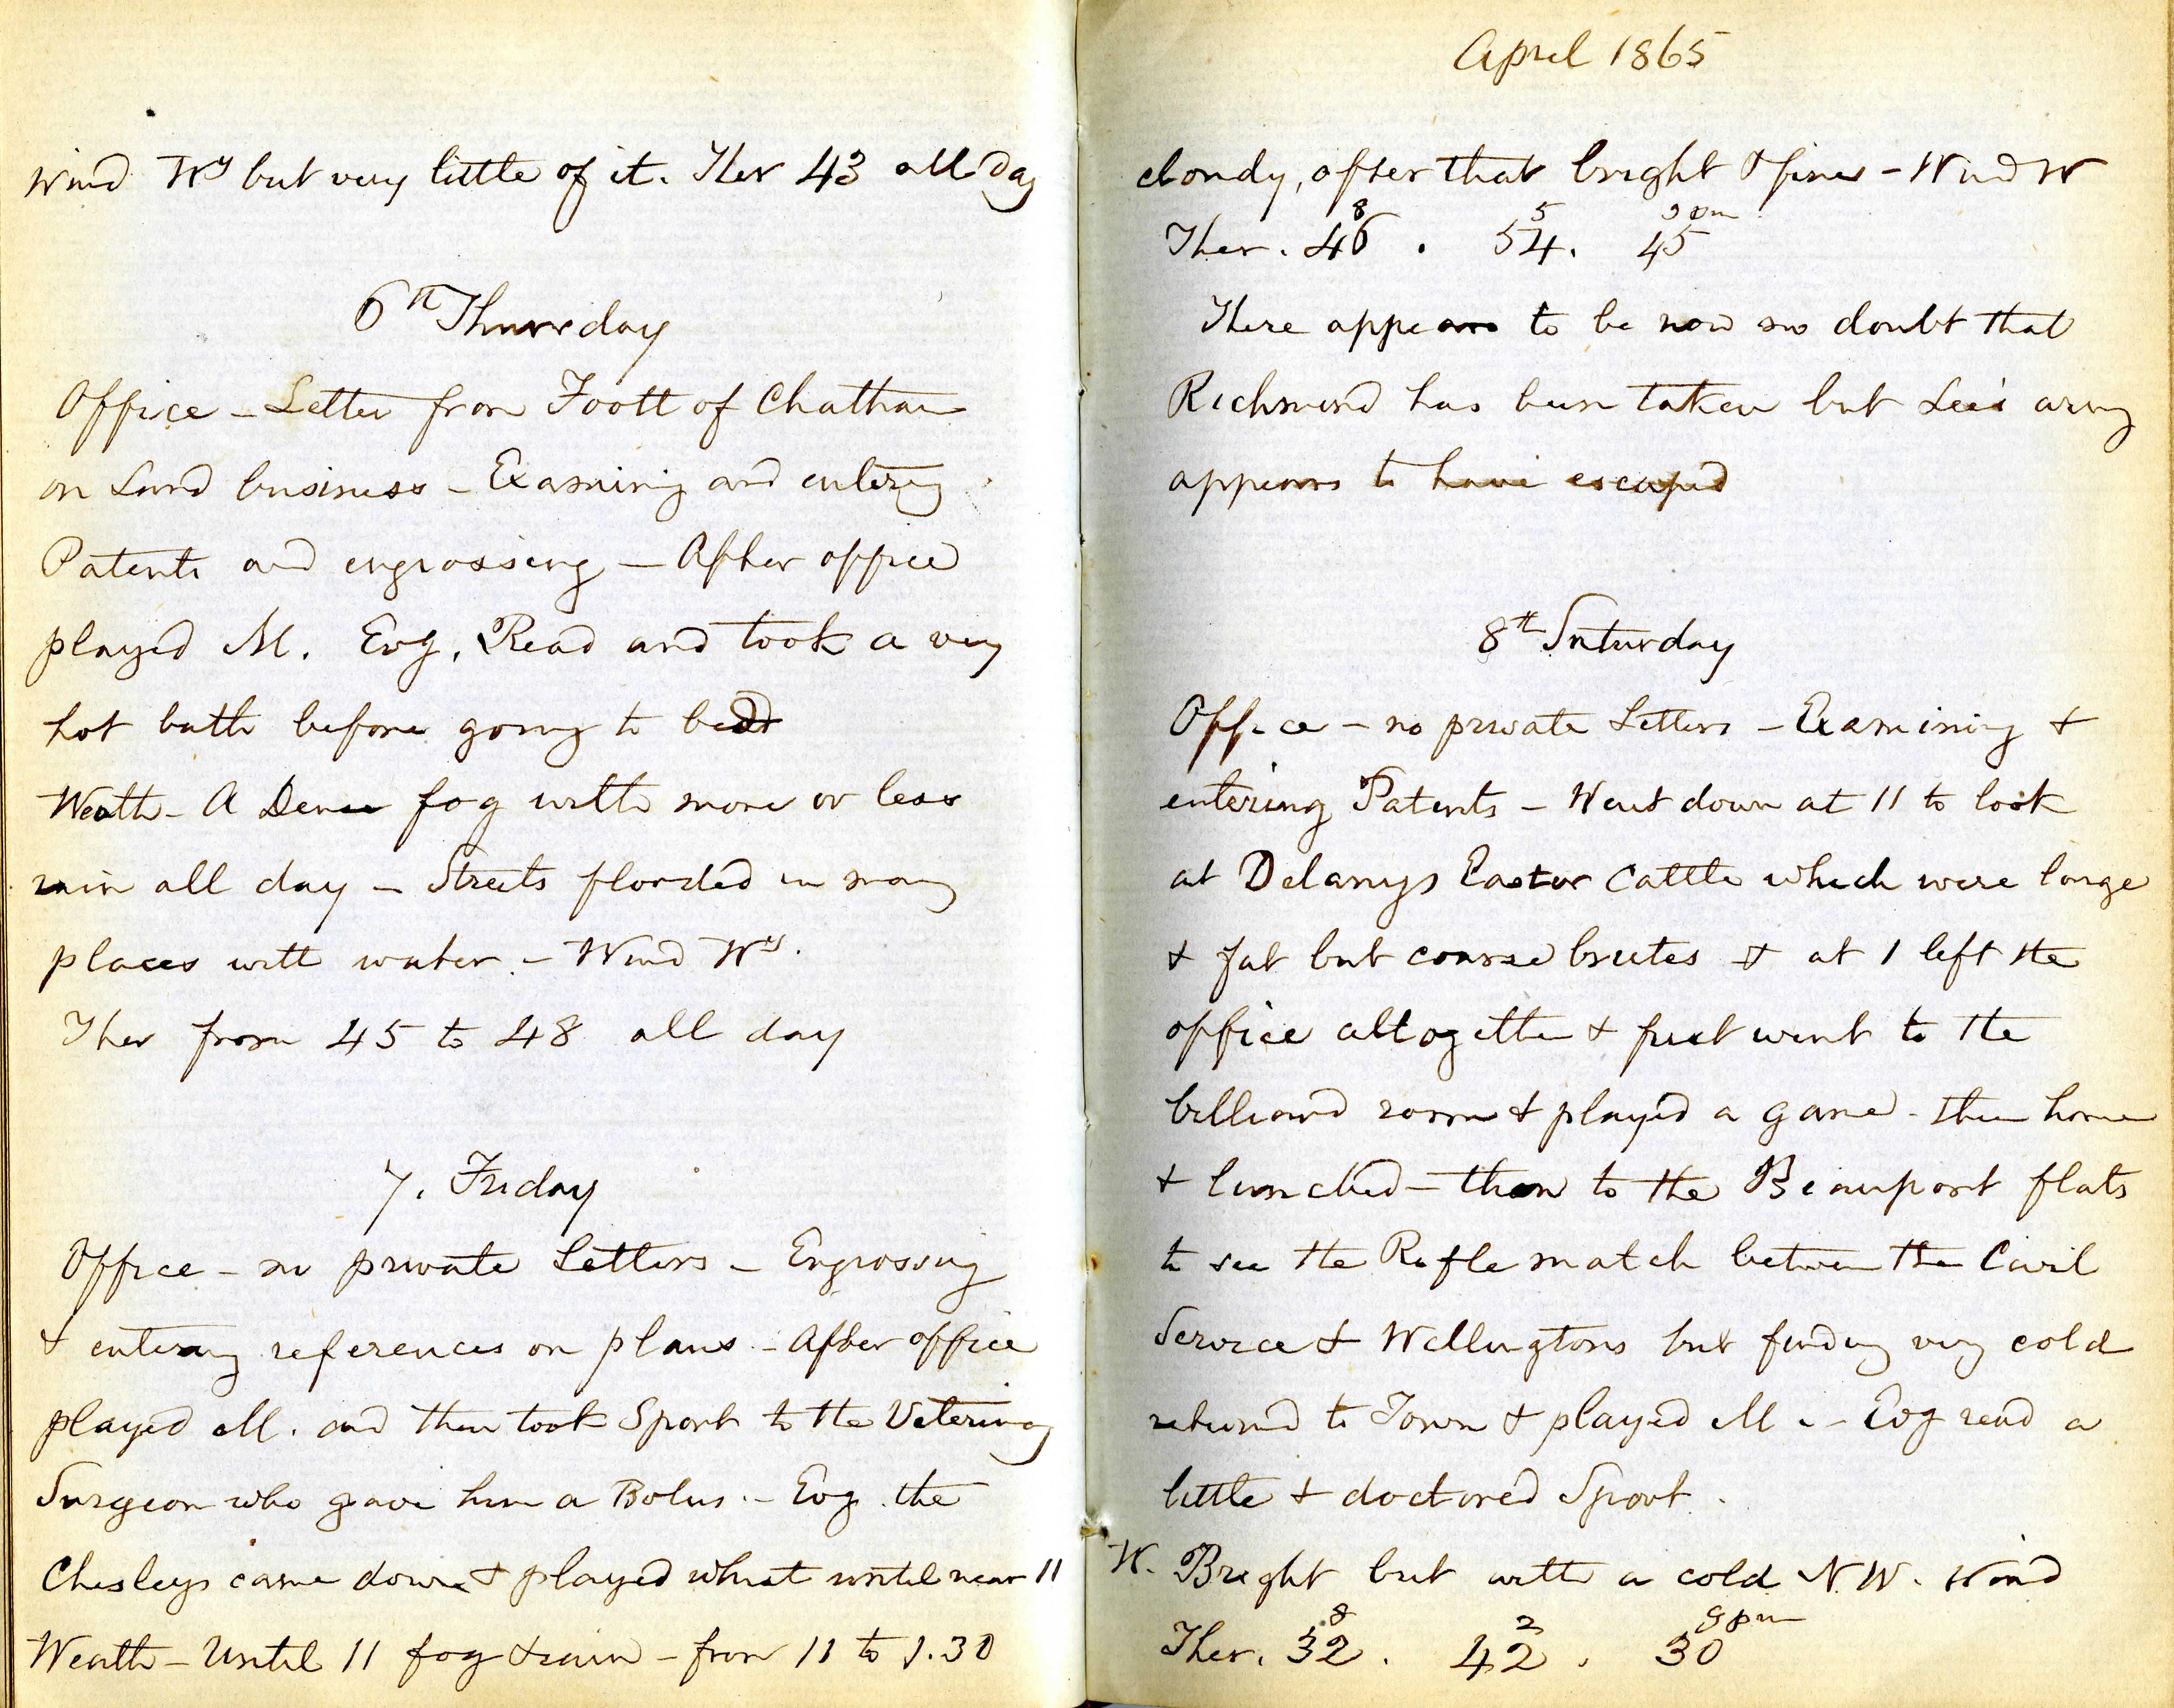 Wind Wy but very little of it. Ther 43 all day
6th Thursday
Office - Letter from Foott of Chatham
on Land business - Examining and entering
Patents and engrossing - After office
played M. Evg. Read and took a very
hot bath before going to bed
Weath - A Dense fog with more or less
rain all day - Streets flooded in many
places with water. - Wind Wy.
Ther from 45 to 48 all day
7. Friday
Office - no private Letters - Engrossing
& entering references on plans - After office
played M. and then took Sport to the Veterinary
Surgeon who gave him a Bolus. - Evg. the
Chesleys came down & played whist until near 11
Weath - Until 11 fog & rain - from 11 to 1.30
April 1865
cloudy, after that bright & fine - Wind W
8 5 9 pm
Ther. 46 . 54. 45
There appears to be now no doubt that
Richmond has been taken but Lee's army
appears to have escaped
8th Saturday
Office - no private Letters - Examining &
entering Patents - Went down at 11 to look
at Delanys Easter Cattle which were large
& fat but coarse brutes & at 1 left the
office altogether & first went to the
billiard room & played a game - then home
& lunched - then to the Beauport flats
to see the Rifle match between the Civil
Service & Wellingtons but finding very cold
returned to Town & played M. - Evg read a
little & doctored Sport.
W. Bright but with a cold N.W. Wind
8 2 9 pm
Ther. 32 . 42 . 30